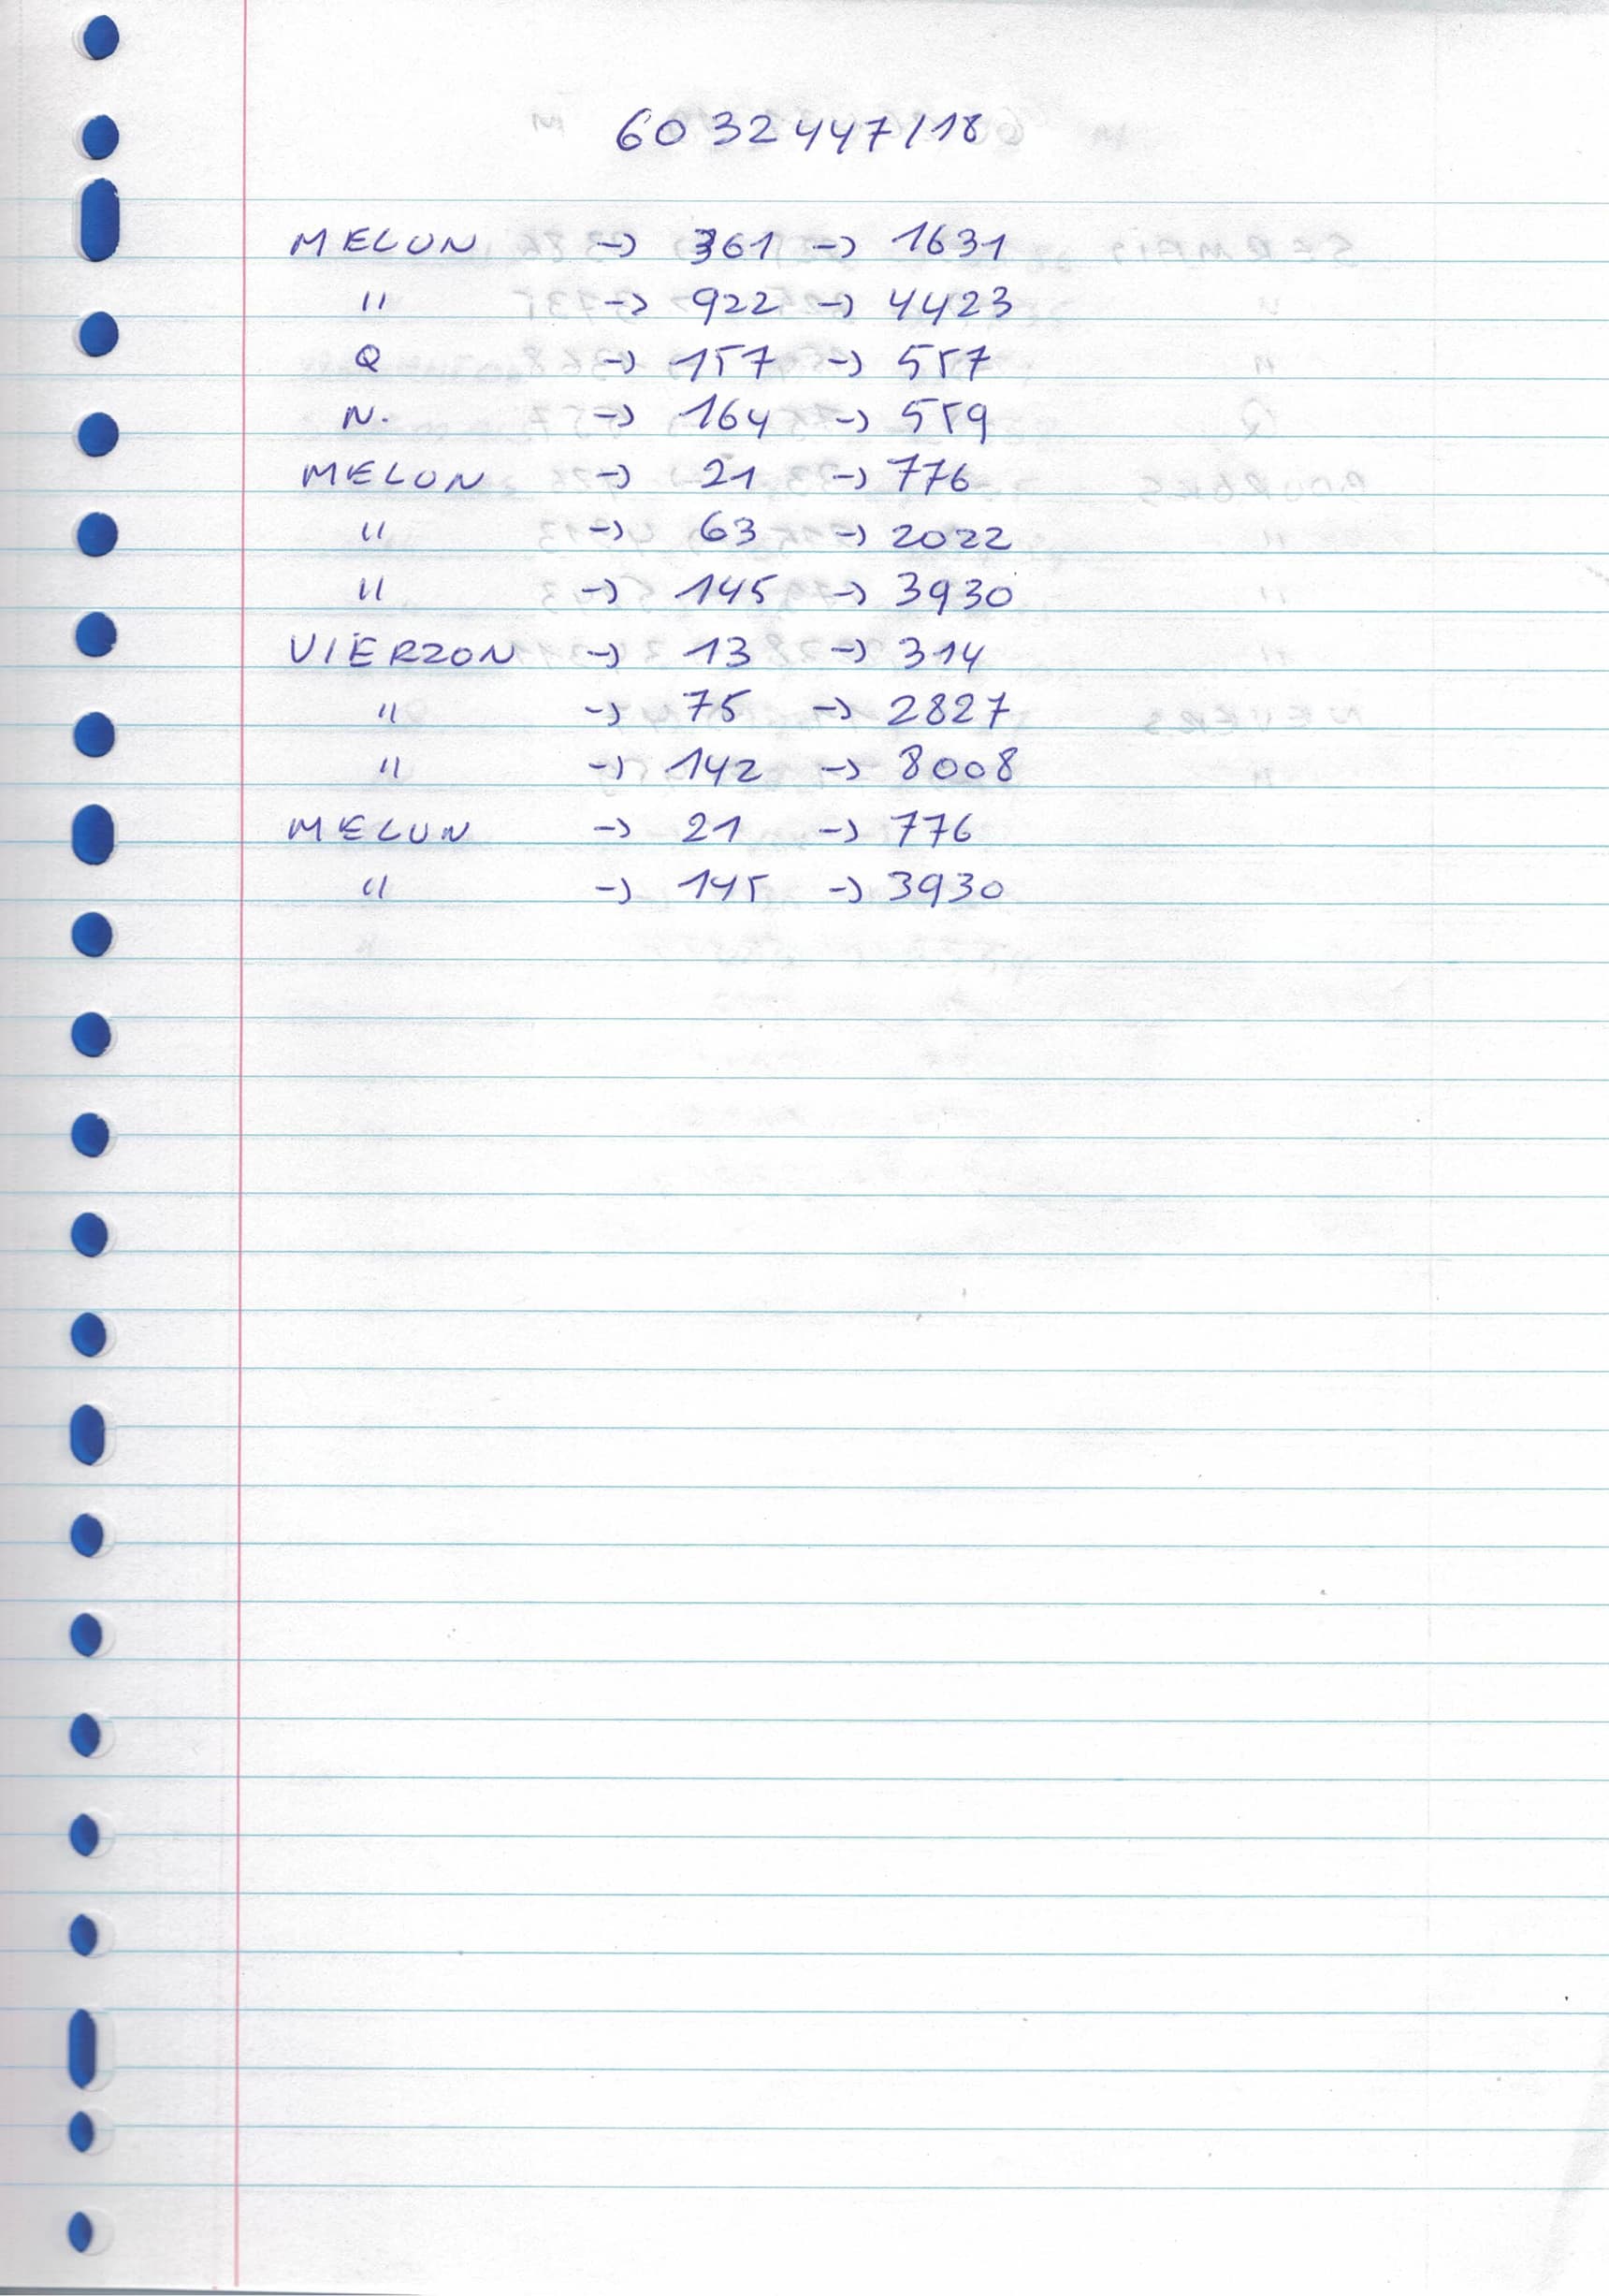 6032447/18
MELUN -> 361 -> 1631
" -> 922 -> 4423
Q -> 157 -> 557
N. -> 164 -> 559
MELUN -> 21 -> 776
" -> 63 -> 2022
" -> 145 -> 3930
VIERZON -> 13 -> 314
" -> 75 -> 2827
" -> 142 -> 8008
MELUN -> 21 -> 776
" -> 145 -> 3930